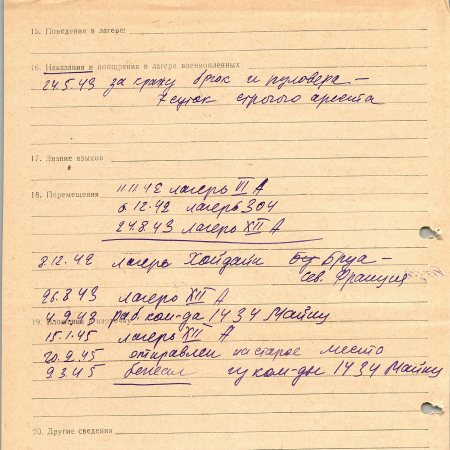 15. Поведение в лагере:
16. Наказания и поощрения в лагере военнопленных
24.5.43 за кражу брюк и пуловера –
7 суток строгого ареста
17. Знание языков
18. Перемещения 11.11.42 лагерь VI А
6.12.42 лагерь 304
27.8.43 лагерь XII А
8.12.42 лагерь Хойдайн Бруа –
Сев. Франция
26.8.43 лагерь XII А
4.9.43 раб. ком-да 1434 Майнц
19.
15.1.45 лагерь XII А
20.9.45 отправлен на старое место
9.3.45 бежал ком-ды 1434 Майнц
20. Другие сведения